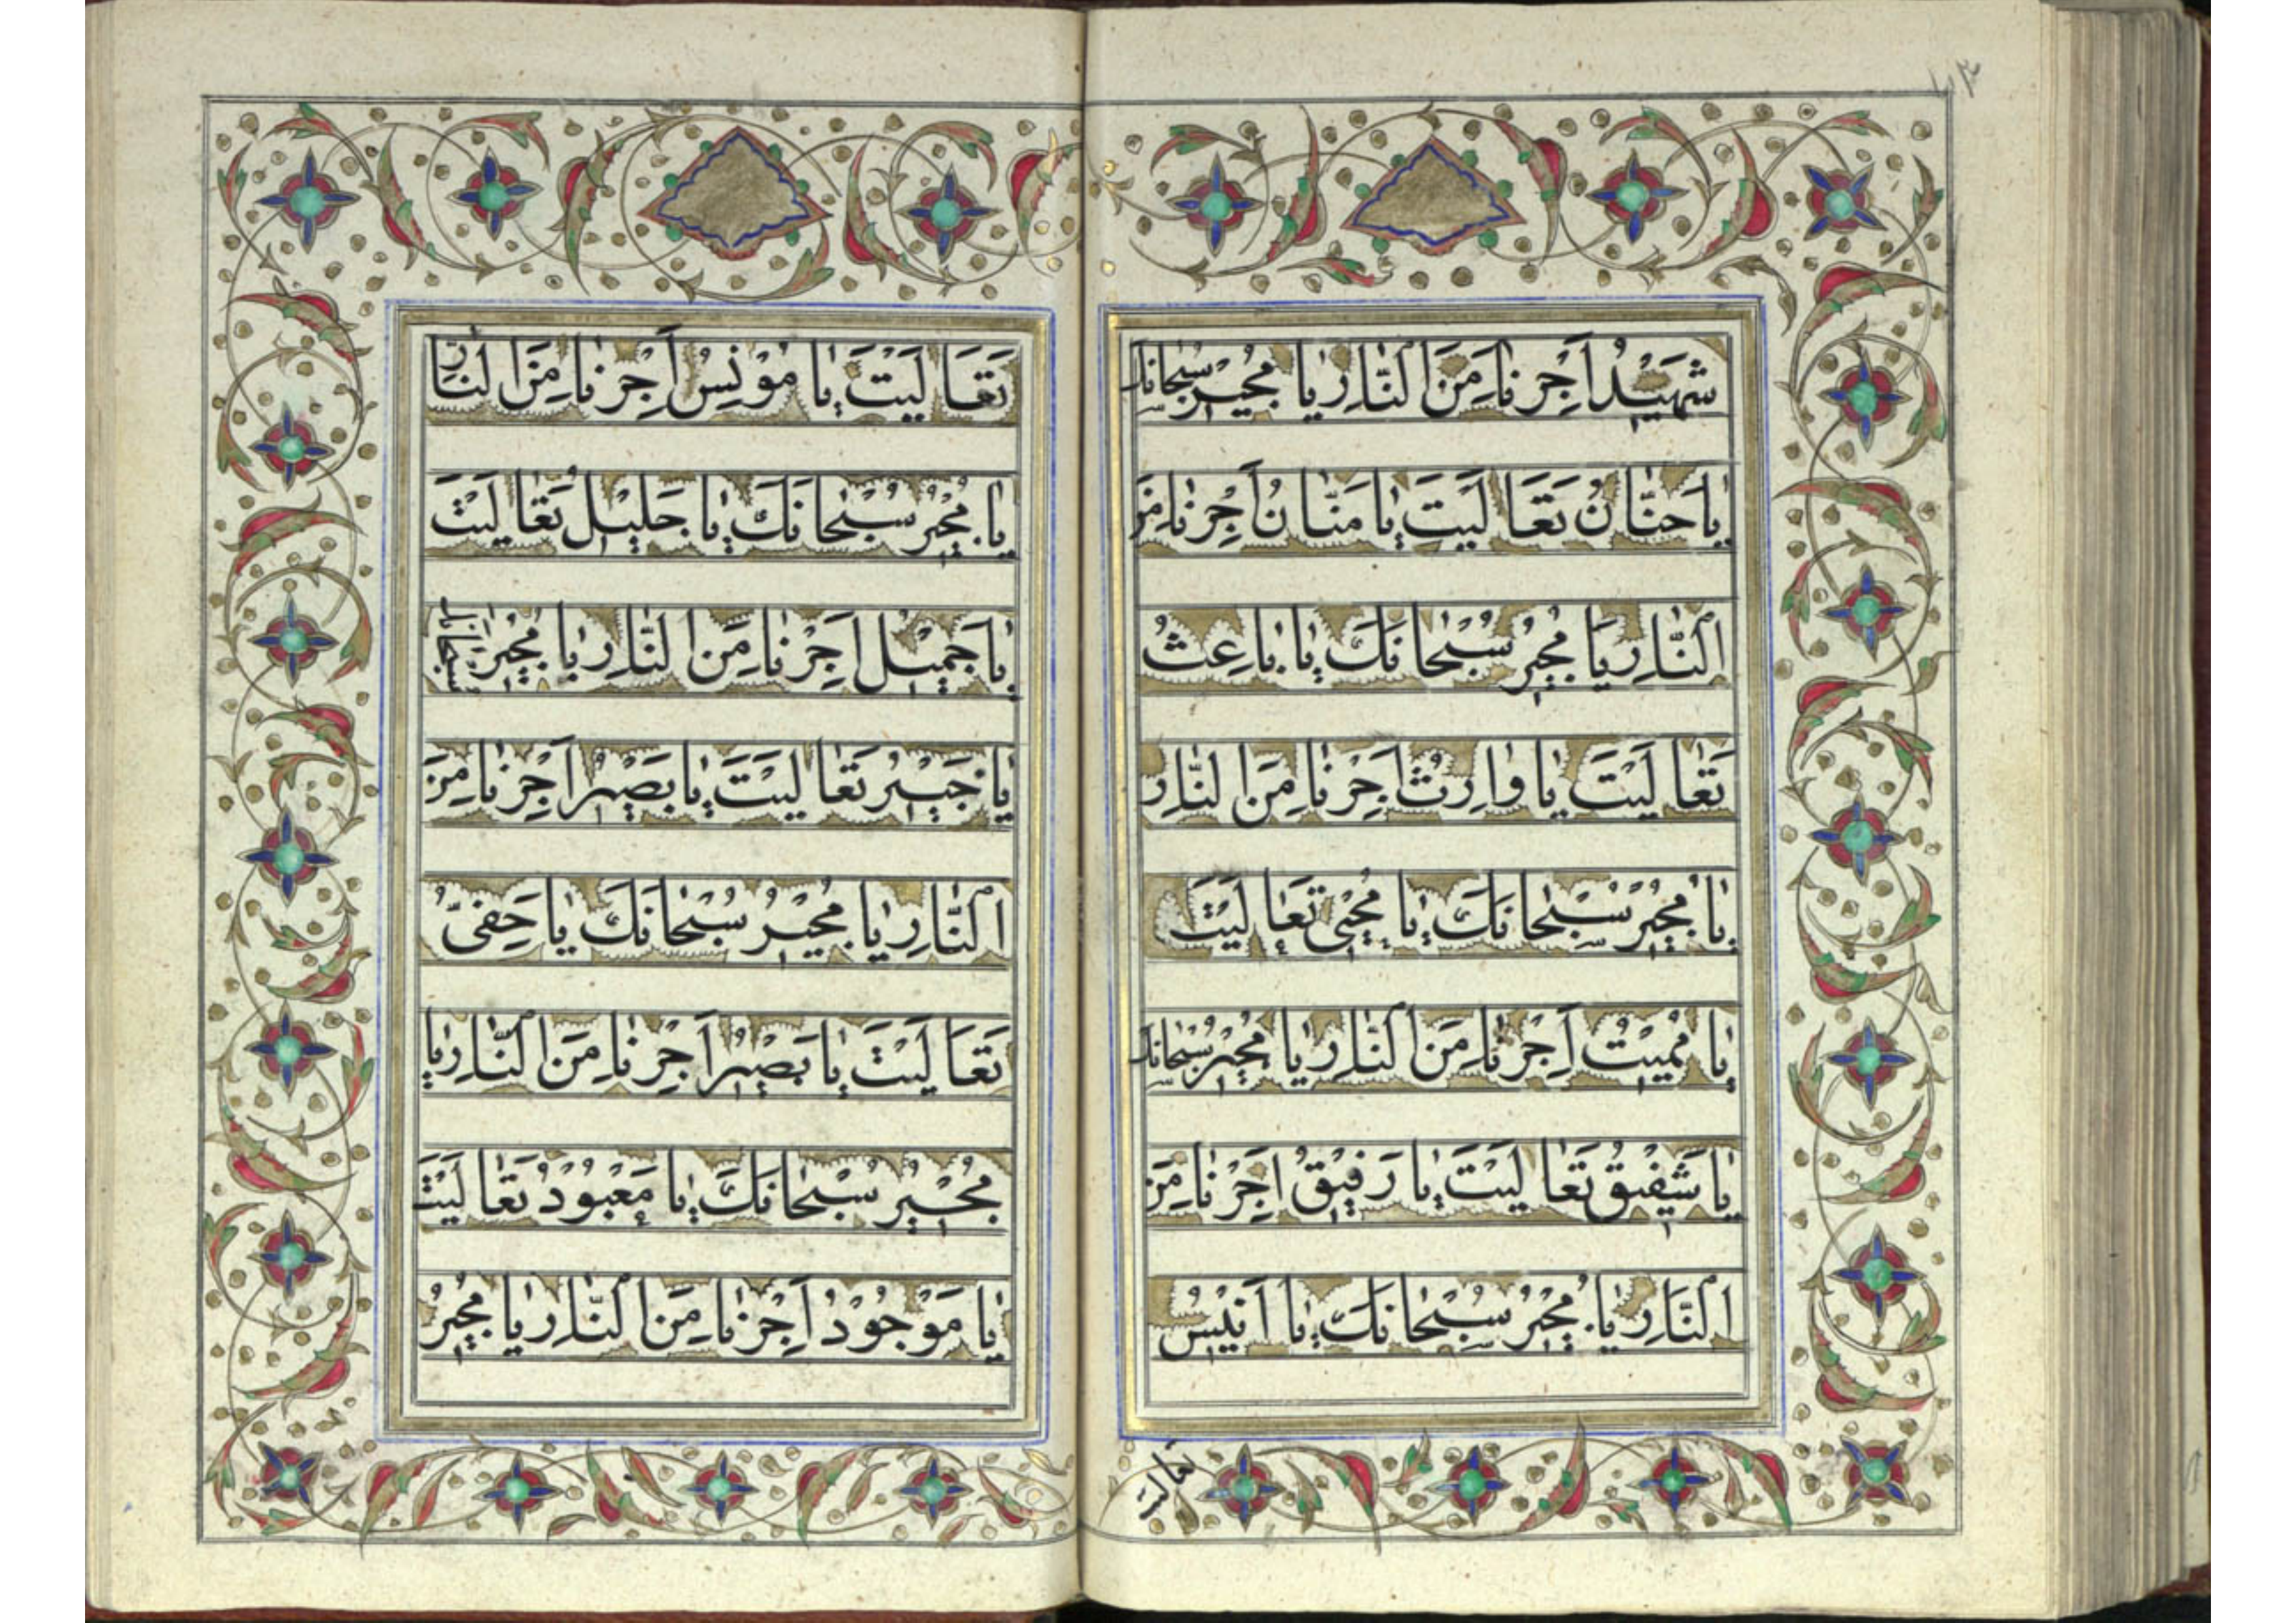 شَهِيْدُ اَجِرْنٰا مِنَ النّٰارِ يٰا مُجيٖرُ سُبْحٰانَكَ
يٰا حَنّٰانُ تَعَالَيْتَ يٰا مَنّٰانُ اَجِرْنٰا مِنَ
النّٰارِ يٰا مُجيٖرُ سُبْحٰانَكَ يٰا بٰاعِثُ
تَعٰالَيْتَ يٰا وٰارِثُ اَجِرْنٰا مِنَ النّٰارِ
يٰا مُجيٖرُ سُبْحٰانَكَ يٰا مُحْيٖى تَعٰالَيْتَ
يٰا مُميٖتُ اَجِرْنٰا مِنَ النّٰارِ يٰا مُجيٖرُ سُبْحٰانَكَ
يٰا شَفيٖقُ تَعٰالَيْتَ يٰا رَفيٖقُ اَجِرْنٰا مِنَ
النّٰارِ يٰا مُجيٖرُ سُبْحٰانَكَ يٰا اَنيٖسُ
تعالیت
تَعَالَيْتَ يٰا مُوْنِسُ اَجِرْنٰا مِنَ النّٰارِ
يٰا مُجيٖرُ سُبْحٰانَكَ يٰا جَليٖلُ تَعٰالَيْتَ
يٰا جَميٖلُ اَجِرْنٰا مِنَ النّٰارِ يٰا مُجيٖرُ سُبْحٰانَكَ
يٰا خَبيٖرُ تَعٰالَيْتَ يٰا بَصيٖرُ اَجِرْنٰا مِنَ
النّٰارِ يٰا مُجيٖرُ سُبْحٰانَكَ يٰا حَفِىُّ
تَعَالَيْتَ يٰا بَصيٖرُ اَجِرْنٰا مِنَ النّٰارِ يٰا
مُجيٖرُ سُبْحٰانَكَ يٰا مَعْبُوْدُ تَعٰالَيْتَ
يٰا مَوْجُوْدُ اَجِرْنٰا مِنَ النّٰارِ يٰا مُجيٖرُ